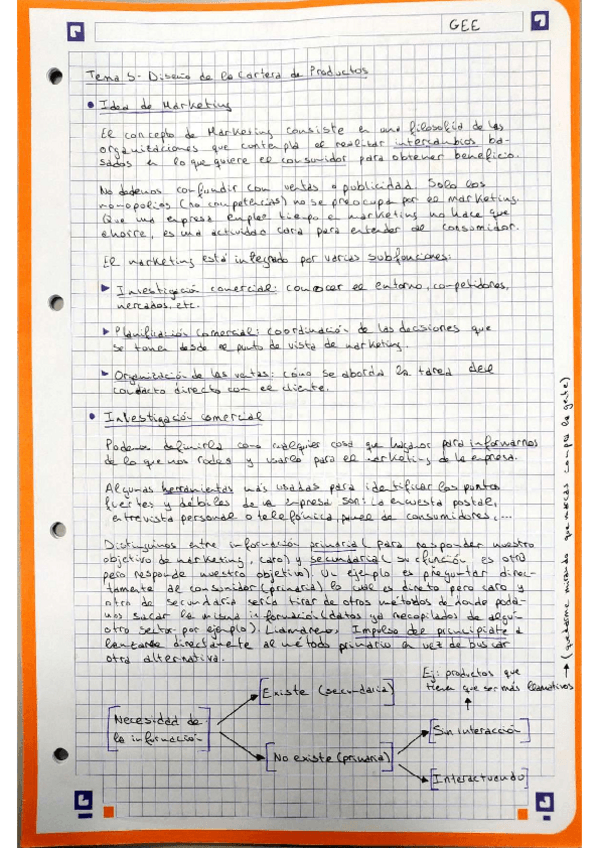 GEE
Tema 5- Diseño de la Cartera de Productos
• Idea de Marketing
El concepto de Marketing consiste en una filosofía de las
organizaciones que contempla el realizar intercambios ba-
sados en lo que quiere el consumidor para obtener beneficio.
No debemos confundir con ventas o publicidad. Solo los
monopolios (no competencias) no se preocupa por el marketing.
Que una empresa emplee tiempo en marketing no hace que
ahorre, es una actividad cara para entender al consumidor.
El marketing está integrado por varias subfunciones:
▶ Investigación comercial: conocer el entorno, competidores,
mercados, etc.
▶ Planificación comercial: coordinación de las decisiones que
se toman desde el punto de vista de marketing.
▶ Organización de las ventas: cómo se aborda la tarea del
contacto directo con el cliente.
• Investigación comercial
Podemos definirla como cualquier cosa que hagamos para informarnos
de lo que nos rodea y usarlo para el marketing de la empresa.
Algunas herramientas más usadas para identificar los puntos
fuertes y débiles de la empresa son: la encuesta postal,
entrevista personal o telefónica, panel de consumidores, ...
→ (quedarme mirando que marcas compra la gente)
Distinguimos entre información primaria (para responder nuestro
objetivo de marketing, caro) y secundaria (su función es otra
pero responde nuestro objetivo). Un ejemplo es preguntar direc-
tamente al consumidor (primaria) lo cual es directo pero caro y
otro de secundaria sería tirar de otros métodos de donde poda-
mos sacar la misma información (datos ya recopilados de algún
otro sector por ejemplo). Llamaremos Impulso del principiante a
lanzarse directamente al método primario en vez de buscar
otra alternativa.
Ej: productos que
tienen que ser más llamativos
[Existe (secundaria)]
[Necesidad de
la información]
[Sin interacción]
[No existe (primaria)]
[Interactuando]